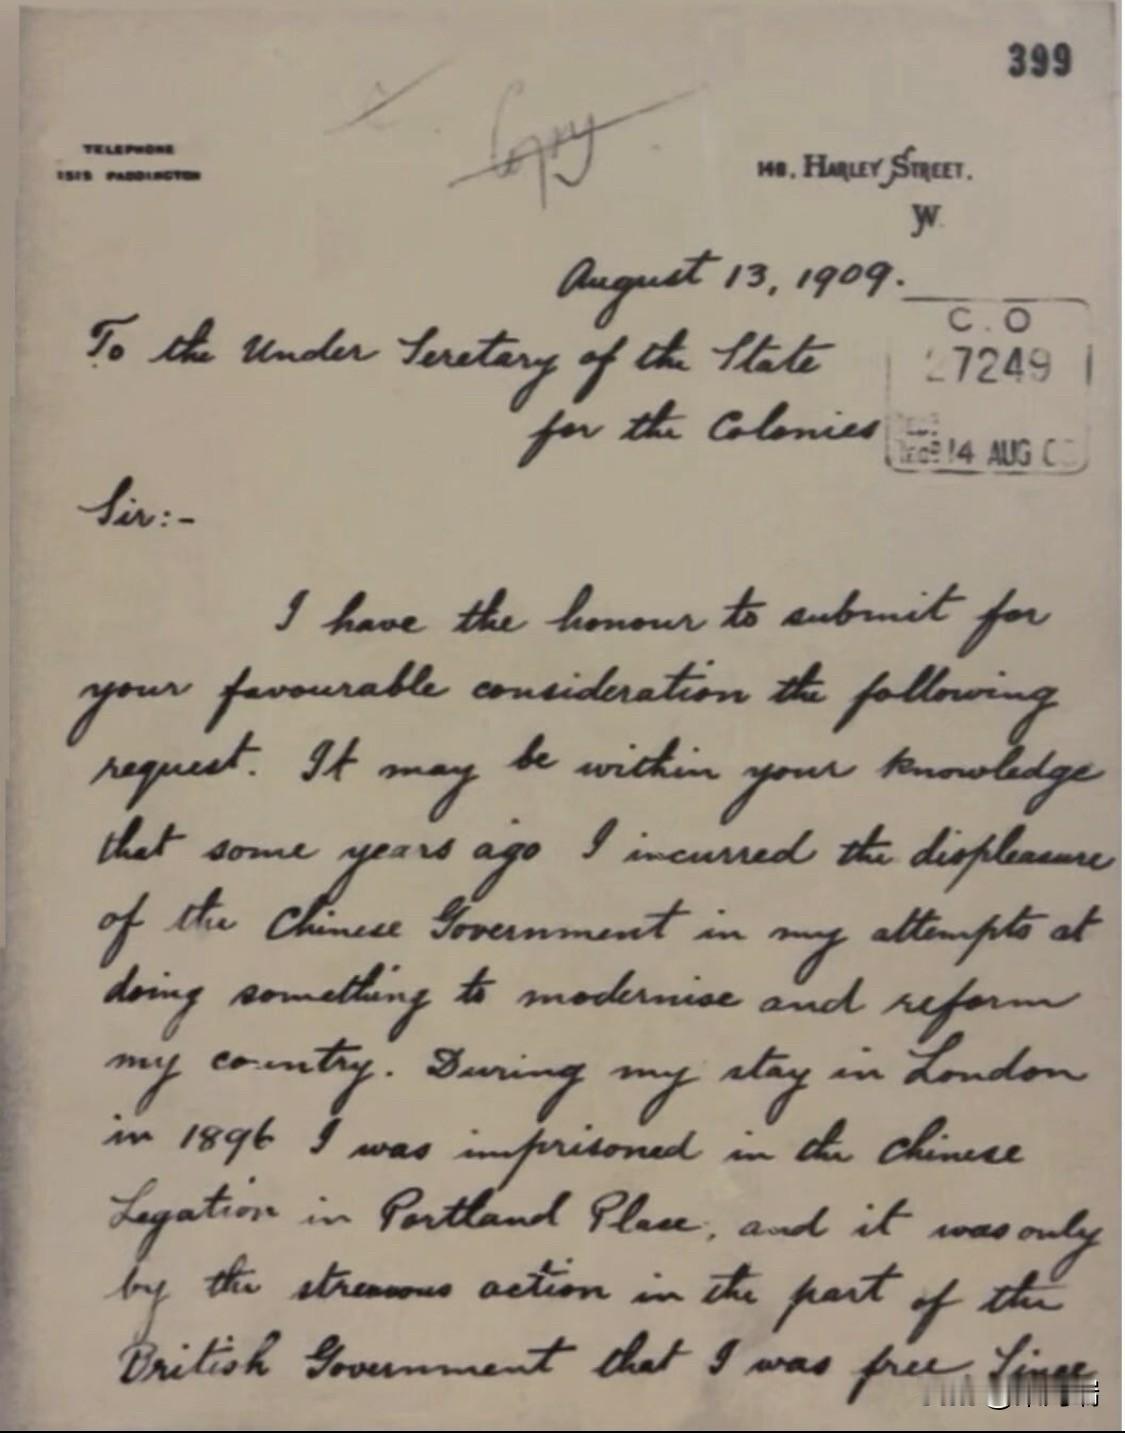 399
Copy
TELEPHONE
1515 PADDINGTON
148, HARLEY STREET.
W.
August 13, 1909.
C.O
27249
14 AUG
To the Under Seretary of the State
for the Colonies
Sir:-
I have the honour to submit for
your favourable consideration the following
request. It may be within your knowledge
that some years ago I incurred the displeasure
of the Chinese Government in my attempts at
doing something to modernise and reform
my country. During my stay in London
in 1896 I was imprisoned in the Chinese
Legation in Portland Place, and it was only
by the strenuous action in the part of the
British Government that I was free Since